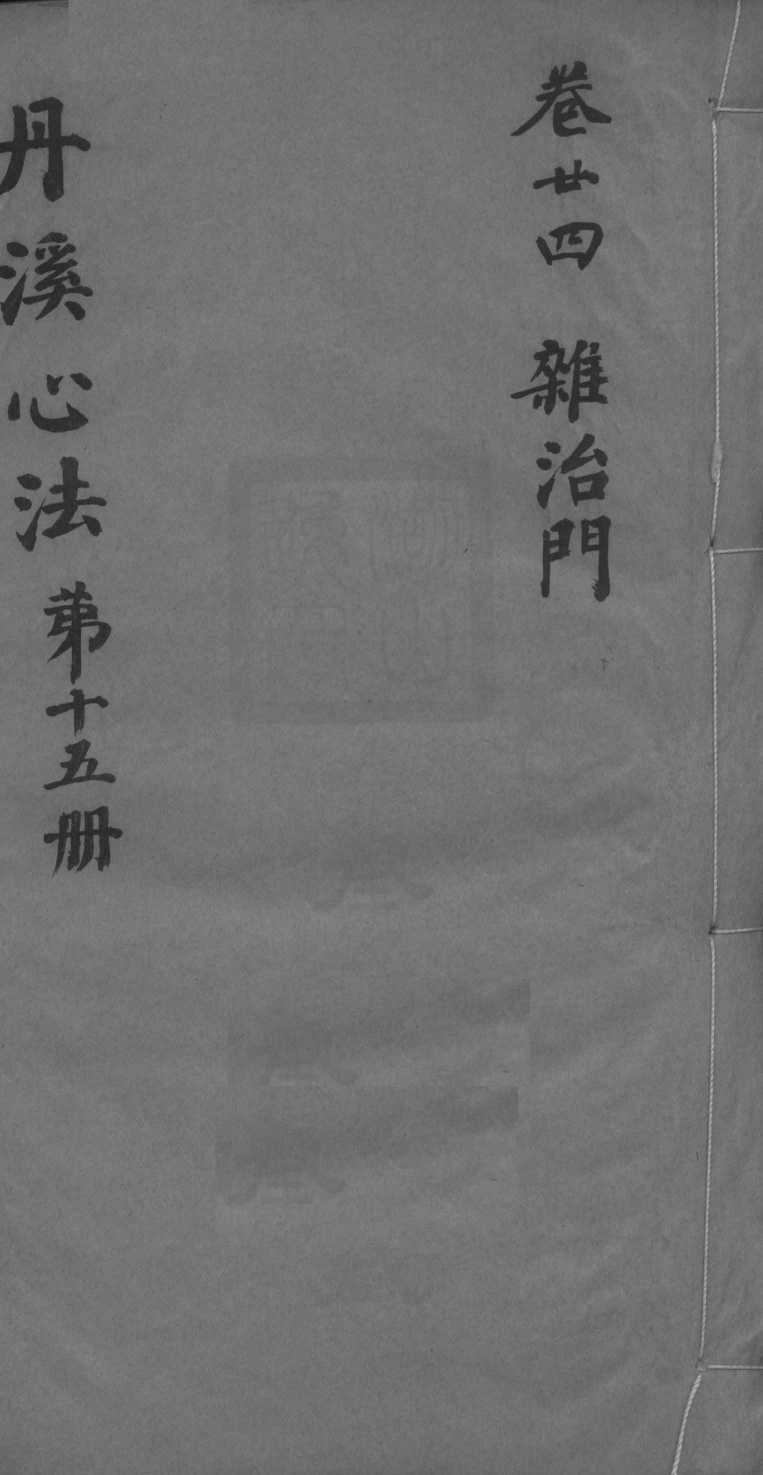 卷廿四 雜治門
丹溪心法 苐十五册